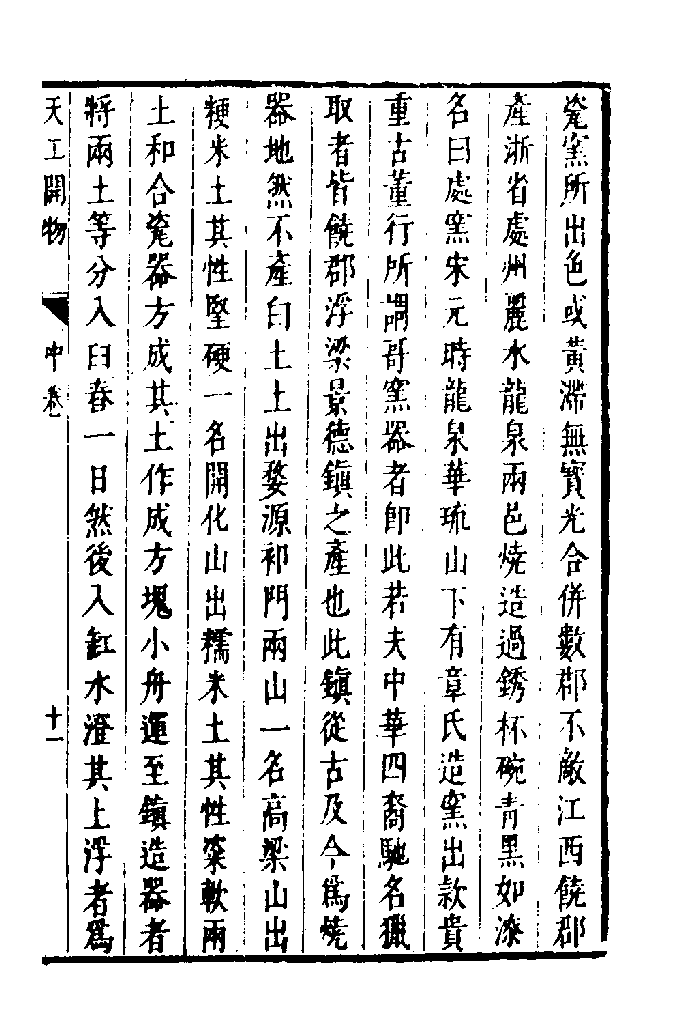 瓷窯所出色或黃滯無寶光合併數郡不敵江西饒郡
產浙省處州麗水龍泉兩邑燒造過銹杯碗青黑如漆
名曰處窯宋元時龍泉華琉山下有章氏造窯出款貴
重古董行所謂哥窯器者卽此若夫中華四裔馳名獵
取者皆饒郡浮梁景德鎮之產也此鎮從古及今爲燒
器地然不產白土土出婺源祁門兩山一名高梁山出
粳米土其性堅硬一名開化山出糯米土其性粢軟兩
土和合瓷器方成其土作成方塊小舟運至鎮造器者
將兩土等分入臼舂一日然後入缸水澄其上浮者爲
天工開物 中卷 十一